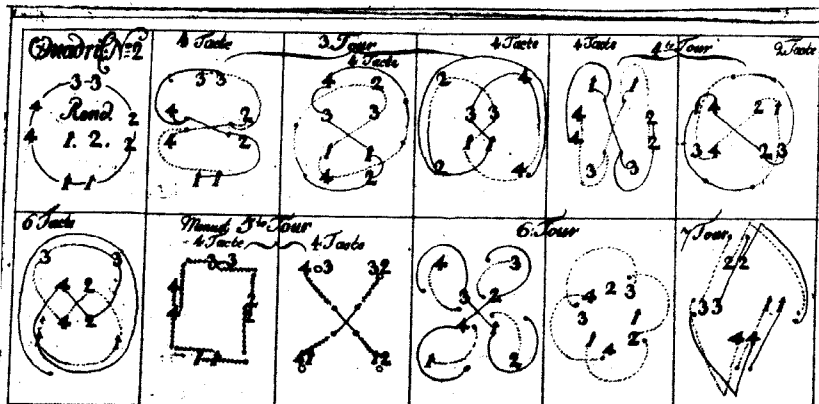 Quadril. No 2
3-3
4 2
Rond.
4 1. 2. 2
1-1
4 Tacte
3 3
4 2
4 2
1-1
3 Tour
4 Tacte
4 2
3 3
1 1
4 2
4 Tacte
2 4
3 3
1 1
2 4
4 Tacte
1 1
4 2
4 2
3 3
4te Tour
2 Tacte
1 4 2 1
3 4 2 3
6 Tacte
3 3
4 2
4 2
1 1
Menuet 5te Tour
4 Tacte
3-3
4 2
4 2
1-1
4 Tacte
4 3 3 2
4 1 1 2
6 Tour
4 3
3 2
4 1
1 2
4 2 3
3 1
1 4 2
7 Tour
2 2
3 3 1 1
4 4